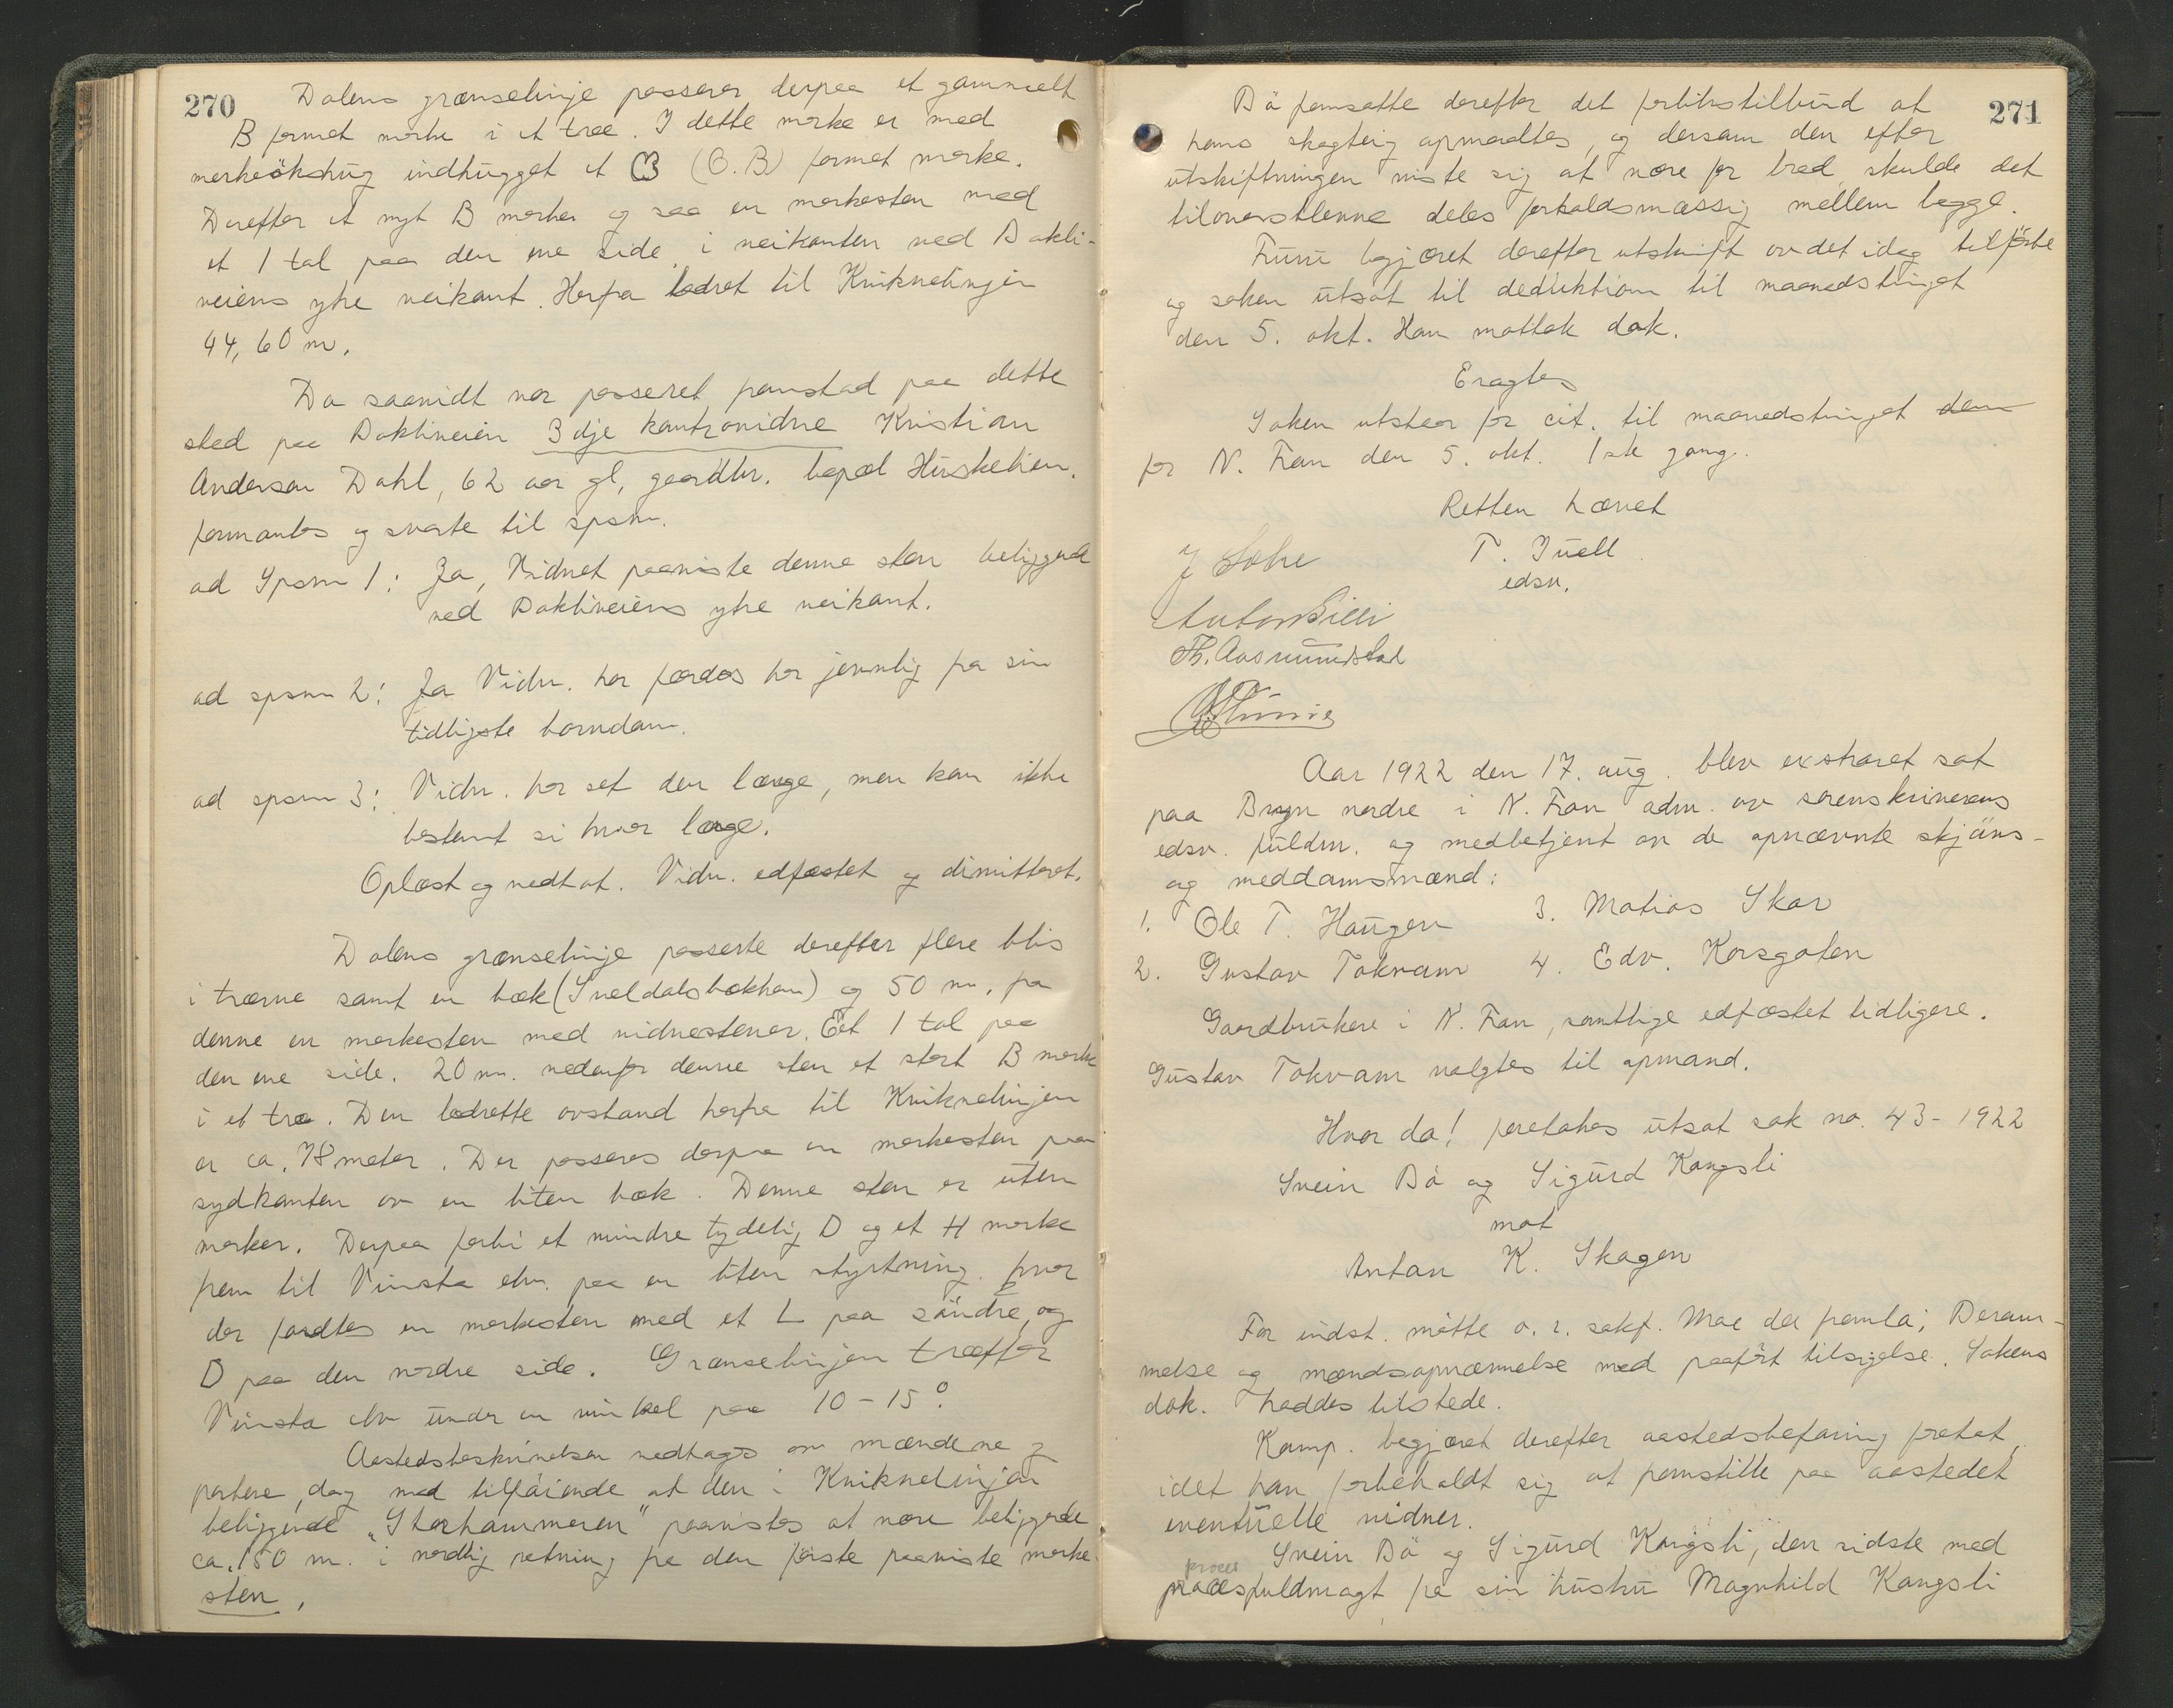 270
Dalens grænselinje passerer derpaa et gammelt
B formet merke i et træ. I dette merke er med
merkeökshug indhugget et B (O.B) formet merke.
Derefter et nyt B merke og saa en merkesten med
et 1 tal paa den ene side, i veikanten ved Bakli-
veiens ytre veikant. Herfra lodret til Kviknelinjen
44,60 m.
Da saavidt var passeret fremstod paa dette
sted paa Bakliveien 3dje kontravidne Kristian
Andersen Dahl, 62 aar gl, gaardbr. bopæl Huskelien.
formantes og svarte til spsm.
ad Spsm 1: Ja, Vidnet paaviste denne sten beliggende
ved Bakliveiens ytre veikant.
ad spsm 2: Ja Vidn. har færdes her jevnlig fra sin
tidligste barndom.
ad spsm 3: Vidn. har set den længe, men kan ikke
bestemt si hvor længe.
Oplæst og vedtat. Vidn. edfæstet og dimitteret.
Dalens grænselinje passerte derefter flere blis
i trærne samt en bæk (Sveldalsbækken) og 50 m. fra
denne en merkesten med vidnestener. Eet 1 tal paa
den ene side. 20 m. nedenfor denne sten et stort B merke
i et træ. Den lodrette avstand herfra til Kviknelinjen
er ca. 78 meter. Der passeres derpaa en merkesten paa
sydkanten av en liten bæk. Denne sten er uten
merker. Derpaa forbi et mindre tydelig D og et H merke
frem til Vinsta elv. paa en liten styrtning. hvor
der fandtes en merkesten med et L paa söndre, og
D paa den nordre side. Grænselinjen træffer
Vinsta elv under en vinkel paa 10-15°.
Aastedsbeskrivelsen vedtages av mændene og
partene, dog med tilföiende at den i Kviknelinjen
beliggende "Storhammeren" paavistes at være beliggende
ca. 150 m. i nordlig retning fra den förste paaviste merke-
sten.
271
Bö fremsatte derefter det forlikstilbud at
hans skogteig opmaaltes, og dersom den efter
utskiftningen viste sig at være for bred, skulde det
tiloversblevne deles forholdsmæssig mellem begge.
Furu begjæret derefter utskrift av det idag tilförte
og saken utsat til deduktion til maanedstinget
den 5. okt. Han mottok dok.
Eragtes
Saken utstaar for cit. til maanedstinget den
for N. Fron den 5. okt. 1ste gang.
Retten hævet
T. Juell
edsv.
Anton Billi
Th. Aasmundstad
Aar 1922 den 17. aug. blev extraret sat
paa Bryn nordre i N. Fron adm. av sorenskriverens
edsv. fuldm. og medbetjent av de opnævnte skjöns-
og meddomsmænd:
1. Ole T. Haugen 3. Matias Skar
2. Gustav Tokvam 4. Edv. Korsgaten
Gaardbrukere i N. Fron, samtlige edfæstet tidligere.
Gustav Tokvam valgtes til opmand.
Hvor da! foretokes utsat sak no. 43-1922
Svein Bö og Sigurd Kongsli
mot
Anton K. Skagen
For indst. mötte o. r. sakf. Moe der fremla; Beram-
melse og mændsopnævnelse med paafört tilsigelse. Sakens
dok. haddes tilstede.
Komp. begjæret derefter aastedsbefaring fretat,
idet han forbeholdt sig at fremstille paa aastedet
eventuelle vidner.
Svein Bö og Sigurd Kongsli, den sidste med
proces
procesfuldmagt fra sin hustru Magnhild Kongsli